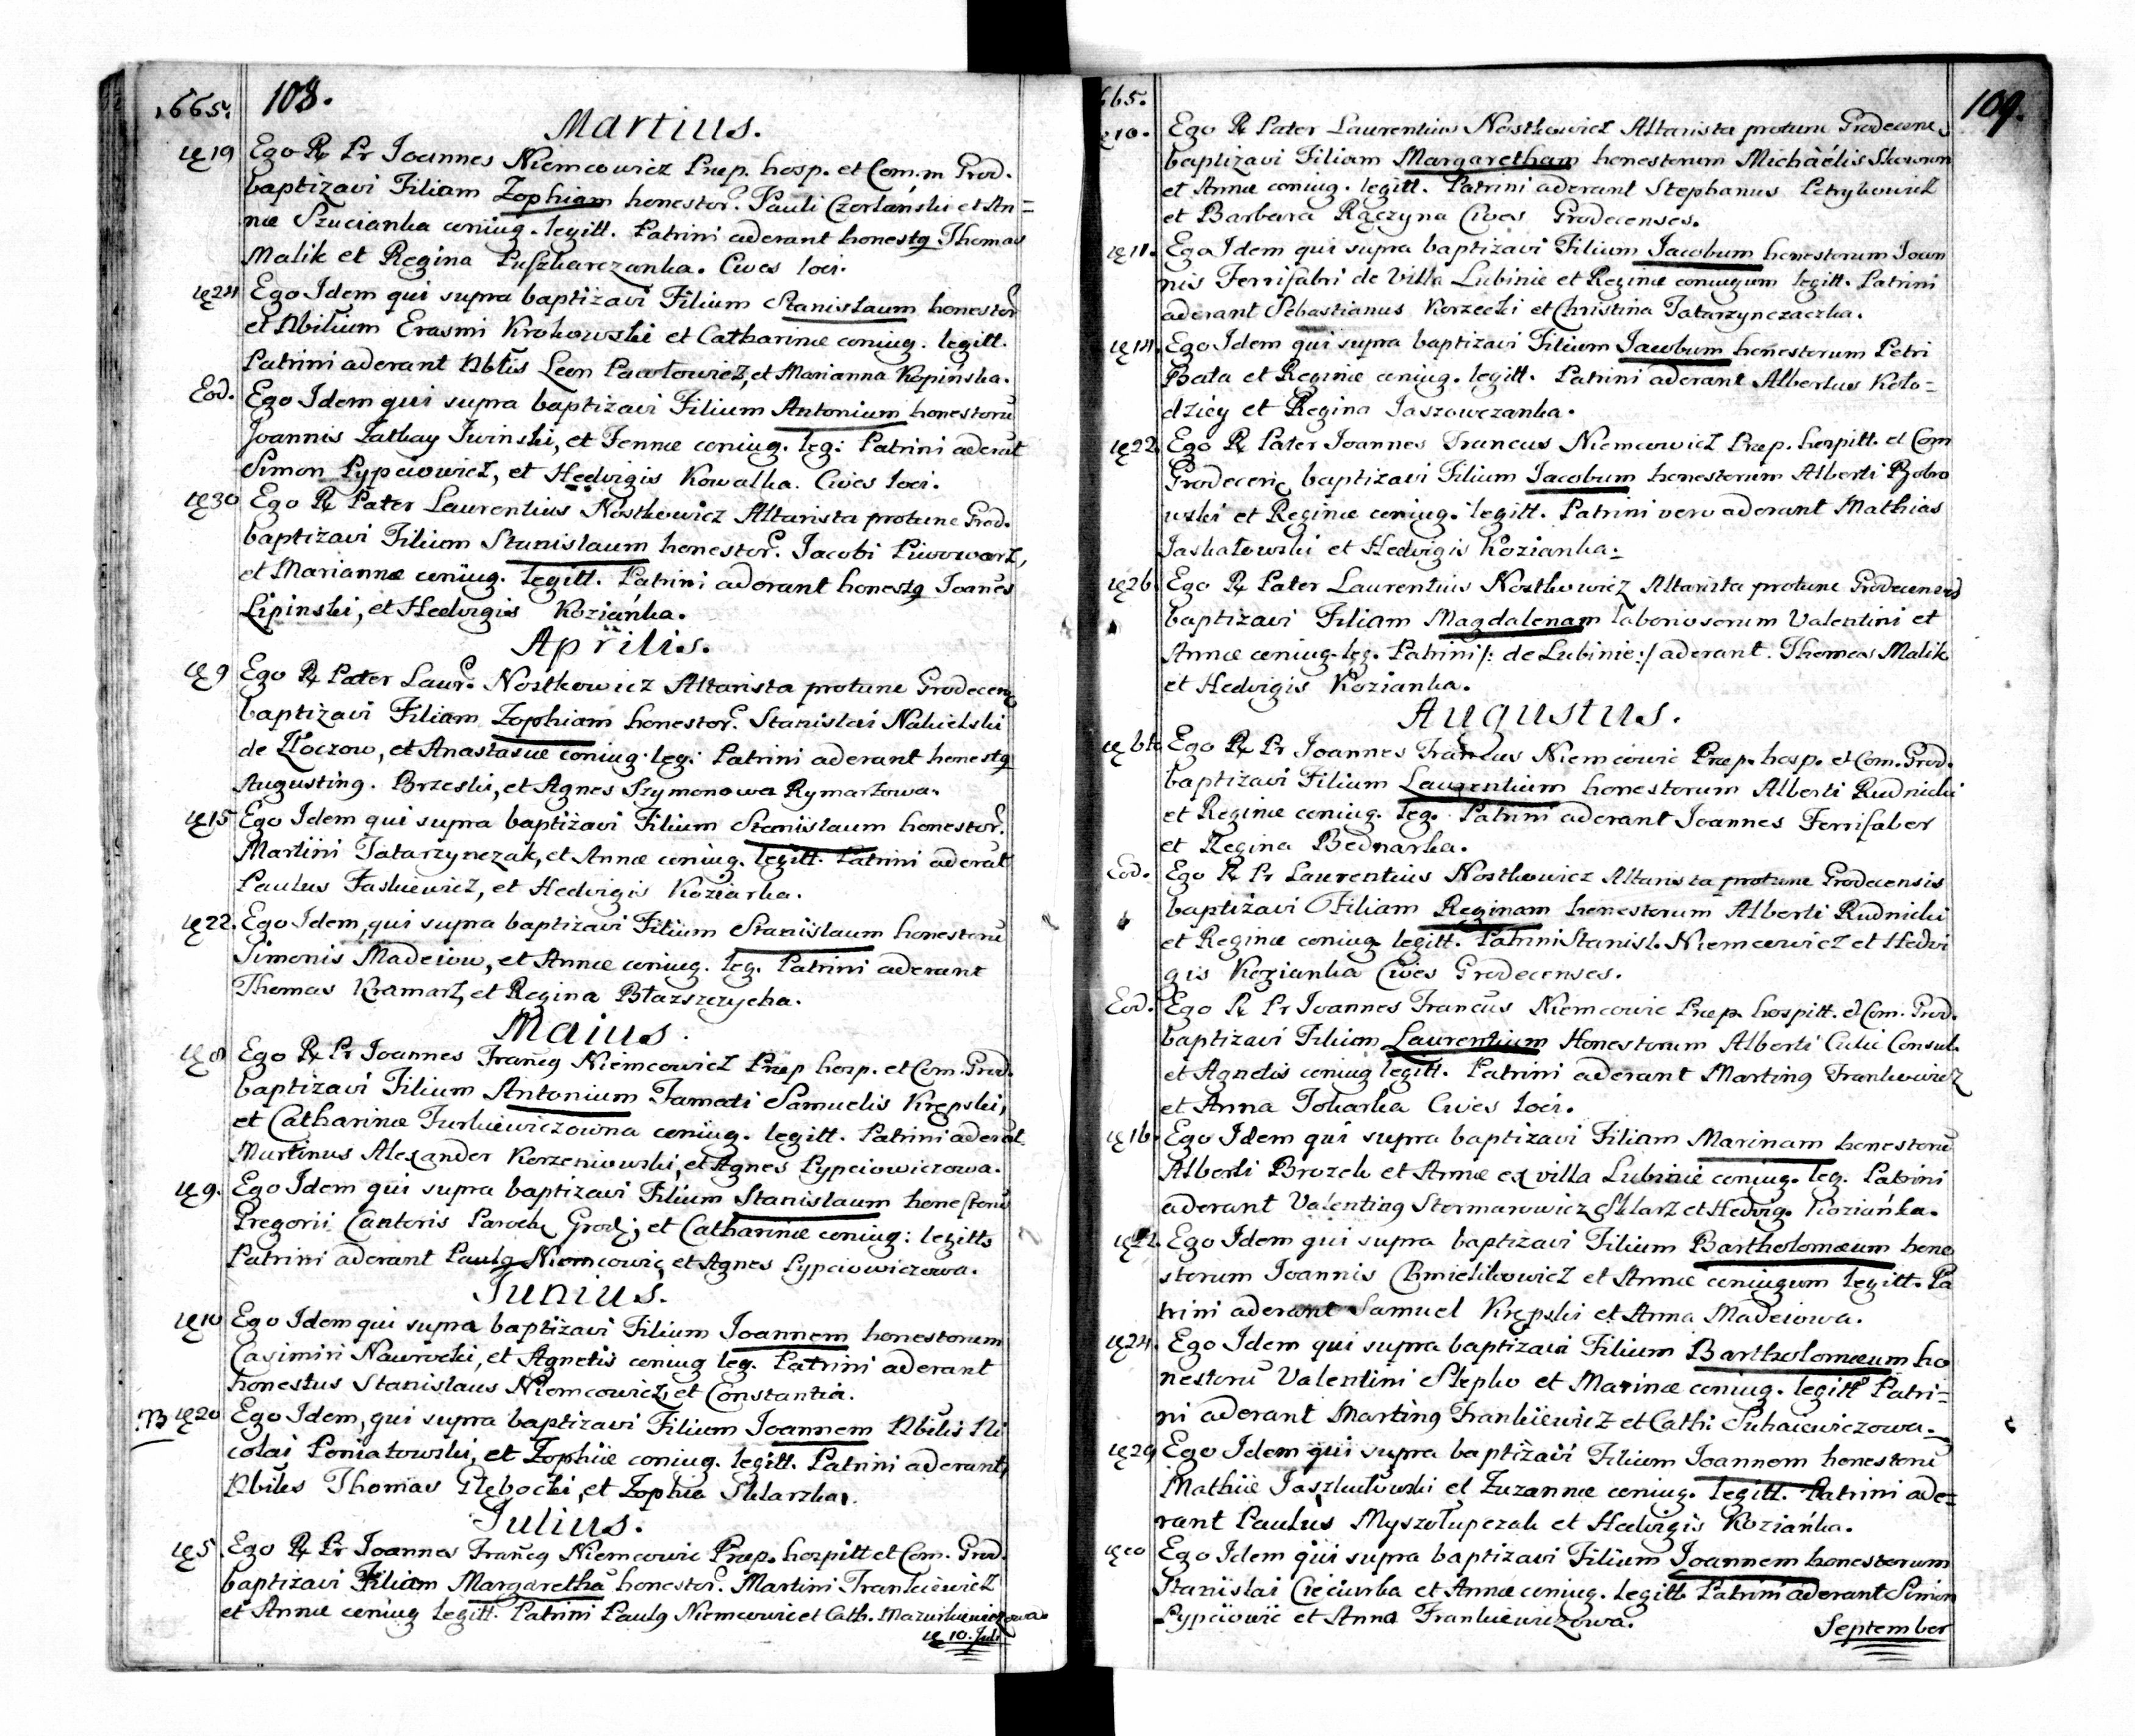 1665. 108.
Martius.
19 Ego R Pr Joannes Niemcowicz Præp. hosp. et Com.m Grod.
baptizavi Filiam Zophiam honestor. Pauli Czorlański et An=
næ Szucianka coniug. legitt. Patrini aderant honestq Thomas
Malik et Regina Puszkarczanka. Cives loci.
24 Ego Idem qui supra baptizavi Filium Stanislaum honestor
et Nbilium Erasmi Krokowski et Catharinæ coniug. legitt.
Patrini aderant Nbtis Leon Pawłowicz, et Marianna Kopińska.
Eod. Ego Idem qui supra baptizavi Filium Antonium honestorū
Joannis Iwinski, et coniug. leg: Patrini aderāt
Simon Pypciowicz, et Hedvigis Kowalka. Cives loci.
30 Ego R Pater Laurentius Nostkowicz Altarista protunc Grod.
baptizavi Filium Stanislaum honestor. Jacobi Piwowarz,
et Mariannæ coniug. legitt. Patrini aderant honestq Joanes
Lipinski, et Hedvigis Koziańka.
Aprilis.
9 Ego R Pater Laur. Nostkowicz Altarista protunc Grodecenc
baptizavi Filiam Zophiam honestor. Stanislai Nakielski
de Złoczow, et Anastasiæ coniug. leg: Patrini aderant honestq
Augustinq. Brzeski, et Agnes Szymonowa Rymarzowa.
15 Ego Idem qui supra baptizavi Filium Stanislaum honestor.
Martini Tatarzynczak, et Annæ coniug. legitt. Patrini aderāt
Paulus Jaskiewicz, et Hedvigis Koziarka.
22. Ego Idem, qui supra baptizavi Filium Stanislaum honestorū
Simonis Madeiow, et Annæ coniug. leg. Patrini aderant
Thomas Kramarz, et Regina Błazszczycha.
Maius.
8 Ego R Pr Joannes Francq Niemcowicz Præp hosp. et Com. Grod.
baptizavi Filium Antonium Famati Samuelis Krępski,
et Catharinæ Furkiewiczowna coniug. legitt. Patrini aderāt
Martinus Alexander Korzeniowski, et Agnes Pypciowiczowa.
9. Ego Idem qui supra baptizavi Filium Stanislaum honestorū
Gregorii Cantoris Paroch Grod; et Catharinæ coniug: legitt
Patrini aderant Paulq Niemcowic, et Agnes Pypciowiczowa.
Junius.
10 Ego Idem qui supra baptizavi Filium Joannem honestorum
Casimiri Nawrocki, et Agnetis coniug leg. Patrini aderant
honestus Stanislaus Niemcowicz, et Constantia.
NB 20 Ego Idem, qui supra baptizavi Filium Joannem Nbilis Ni
colai Poniatowski, et Zophiæ coniug. legitt. Patrini aderant,
Nbiles Thomas Głębocki, et Zophia Sklarzka.
Julius.
5 Ego R Pr Joannes Francq Niemcowic Præp. hospitt et Com. Grod.
baptizavi Filiam Margarethā honestor. Martini Frankiewicz
et Annæ coniug legitt. Patrini Paulq Niemcowic et Cath. Mazurkiewiczowa.
10. Juli
665. 109.
10. Ego R Pater Laurentius Nostkowicz Altarista protunc Grodecens
baptizavi Filiam Margaretham honestorum Michaëlis
et Annæ coniug. legitt. Patrini aderant Stephanus Petrykowicz
et Barbara Rączyna Cives Grodecenses.
11. Ego Idem qui supra baptizavi Filium Jacobum honestorum Joan
nis Ferrifabri de Villa Lubinie et Reginæ coniugum legitt. Patrini
aderant Sebastianus Korzecki et Christina Tatarzynczaczka.
14. Ego Idem qui supra baptizavi Filium Jacobum honestorum Petri
Bała et Reginæ coniug. legitt. Patrini aderant Albertus Koło=
dziey et Regina Jaszowczanka.
22. Ego R Pater Joannes Francus Niemcowicz Præp. hospitt. et Com
Grodecenc baptizavi Filium Jacobum honestorum Alberti Bobro
wski et Reginæ coniug. legitt. Patrini vero aderant Mathias
Jaskałowski et Hedvigis Kozianka.
26. Ego R Pater Laurentius Nostkowicz Altarista protunc Grodecensis
baptizavi Filiam Magdalenam laboriosorum Valentini et
Annæ coniug. leg. Patrini /: de Lubinie :/ aderant. Thomas Malik
et Hedvigis Kozianka.
Augustus.
6 Ego R Pr Joannes Francus Niemcowic Præp. hosp. et Com. Grod.
baptizavi Filium Laurentium honestorum Alberti Rudnicki
et Reginæ coniug. leg. Patrini aderant Joannes Ferrifaber
et Regina Bednarka.
Eod. Ego R Pr Laurentius Nostkowicz Altarista protunc Grodecensis
baptizavi Filiam Reginam honestorum Alberti Rudnicki
et Reginæ coniug legitt. Patrini Stanisl. Niemcewicz et Hedvi
gis Kozianka Cives Grodecenses.
Eod. Ego R Pr Joannes Francus Niemcowic Præp. hospitt. et Com. Grod.
baptizavi Filium Laurentium Honestorum Alberti Consul.
et Agnetis coniug legitt. Patrini aderant Martinq Frankowicz
et Anna Tokarka Cives loci.
16. Ego Idem qui supra baptizavi Filiam Marinam honestorū
Alberti Brozek et Annæ ex villa Lubinie coniug. leg. Patrini
aderant Valentinq Stormarowicz Sklarz et Hedvig. Koziańka.
Ego Idem qui supra baptizavi Filium Bartholomæum hone
storum Joannis Chmielikowicz et Annæ coniugum legitt. Pa
trini aderant Samuel Krępski et Anna Madeiowa.
24. Ego Idem qui supra baptizavi Filium Bartholomæum ho
nestorū Valentini Stepko et Marinæ coniug. legitt Patri=
ni aderant Martinq Frankiewicz et Cath: Suhaiewiczowa.
29 Ego Idem qui supra baptizavi Filium Joannem honestorū
Mathiæ Jaszkułowski et Zuzannæ coniug. legitt. Patrini ade=
rant Paulus Myszołupczak et Hedvigis Koziańka.
Ego Idem qui supra baptizavi Filium Joannem honestorum
Stanislai Cieciurka et Annæ coniug. legitt Patrini aderant Simon
Pypciowic et Anna Frankiewiczowa.
September